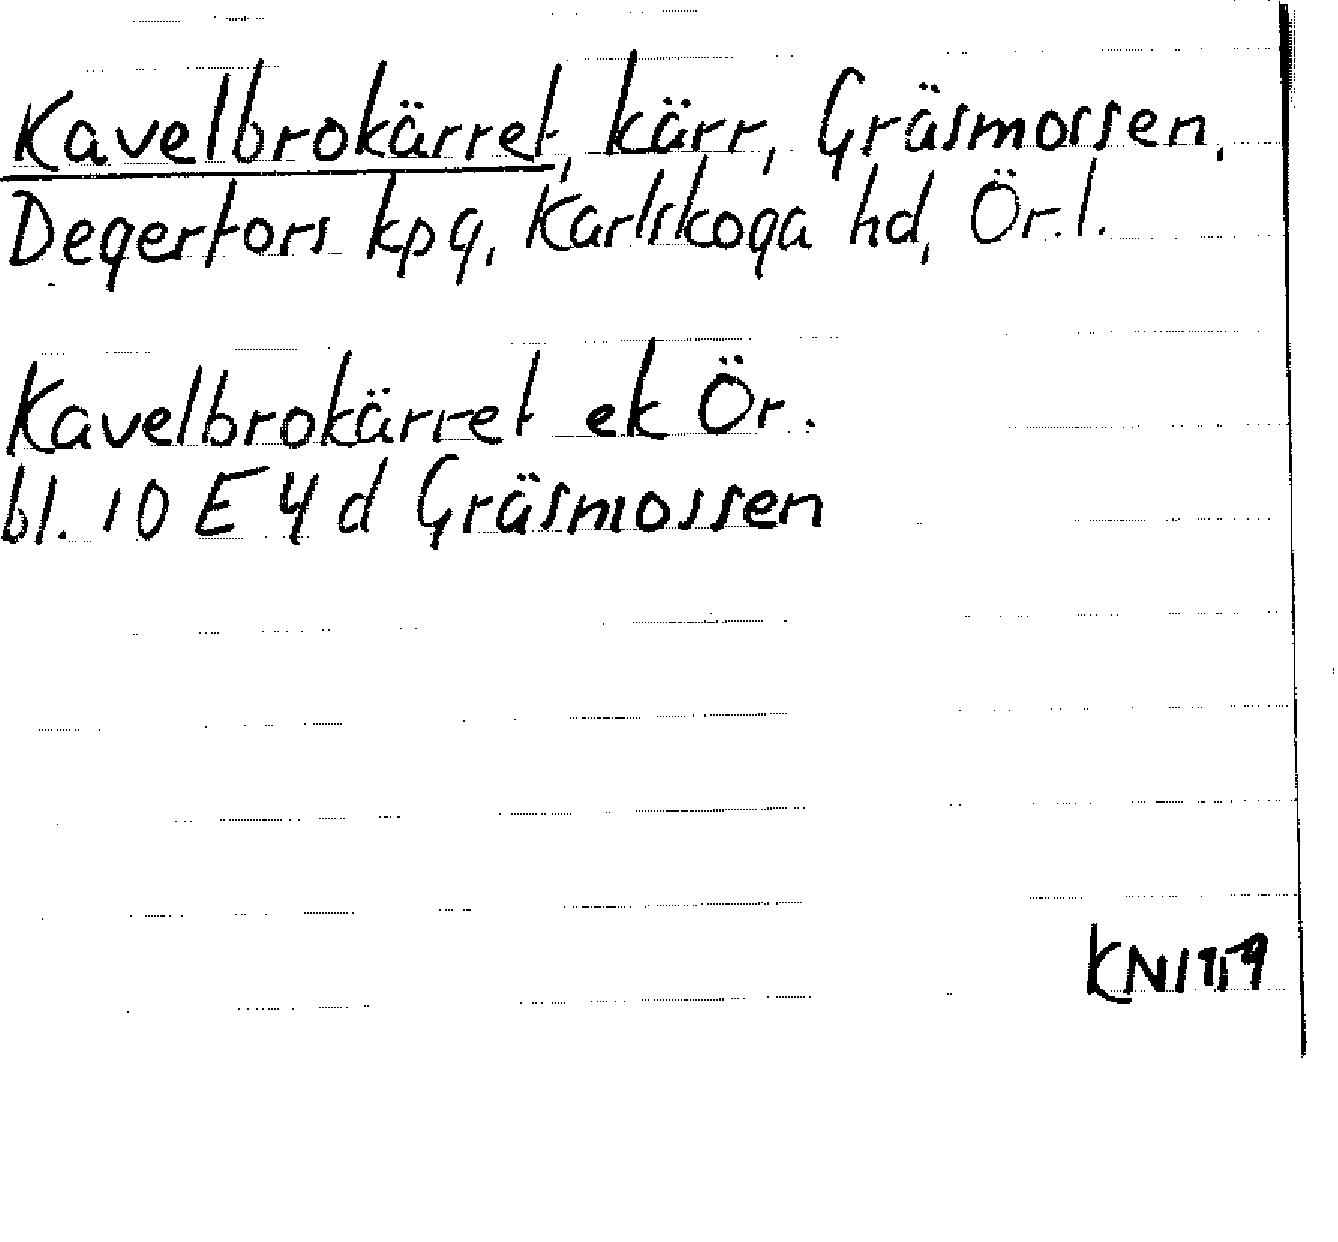 Kavelbrokärret, kärr, Gräsmossen,
Degerfors kpg, Karlskoga hd, Ör. l.
Kavelbrokärret ek Ör.
bl. 10 E 4 d Gräsmossen